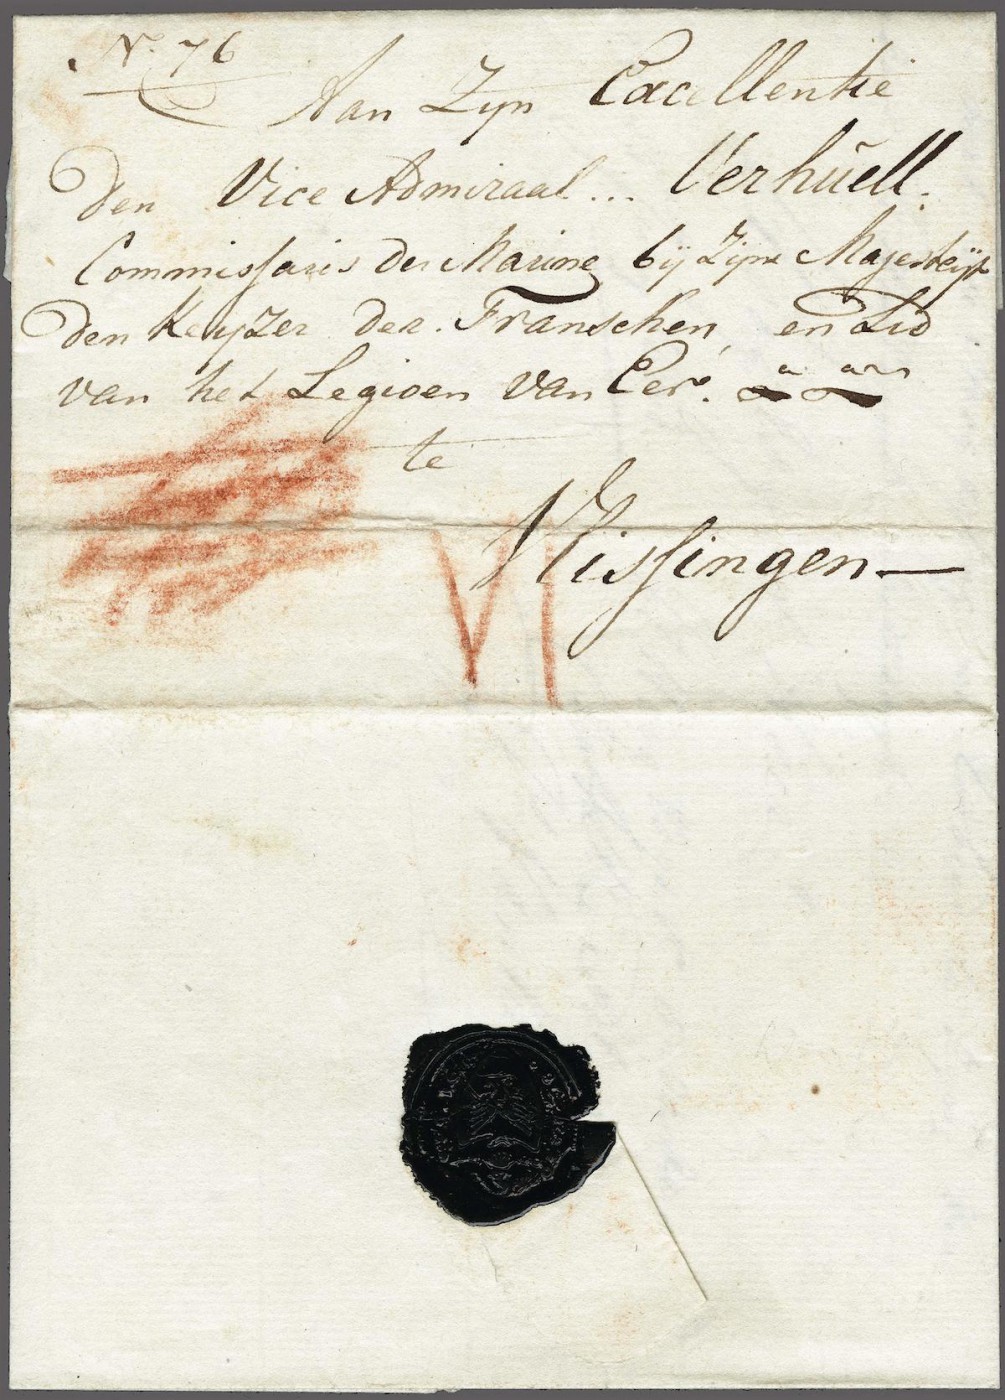 No. 76
Aan Zyn Excellentie
den Vice Admiraal... Verhüell.
Commissaris der Marine bij Zijne Majesteijt
den Keyzer der Franschen, en Lid
van het Legioen van Eer.
te
Vlissingen
VI